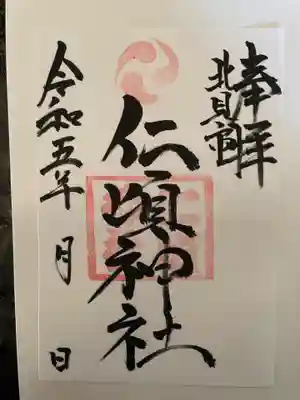 奉拝
北見
仁頃神社
令和五年 月 日